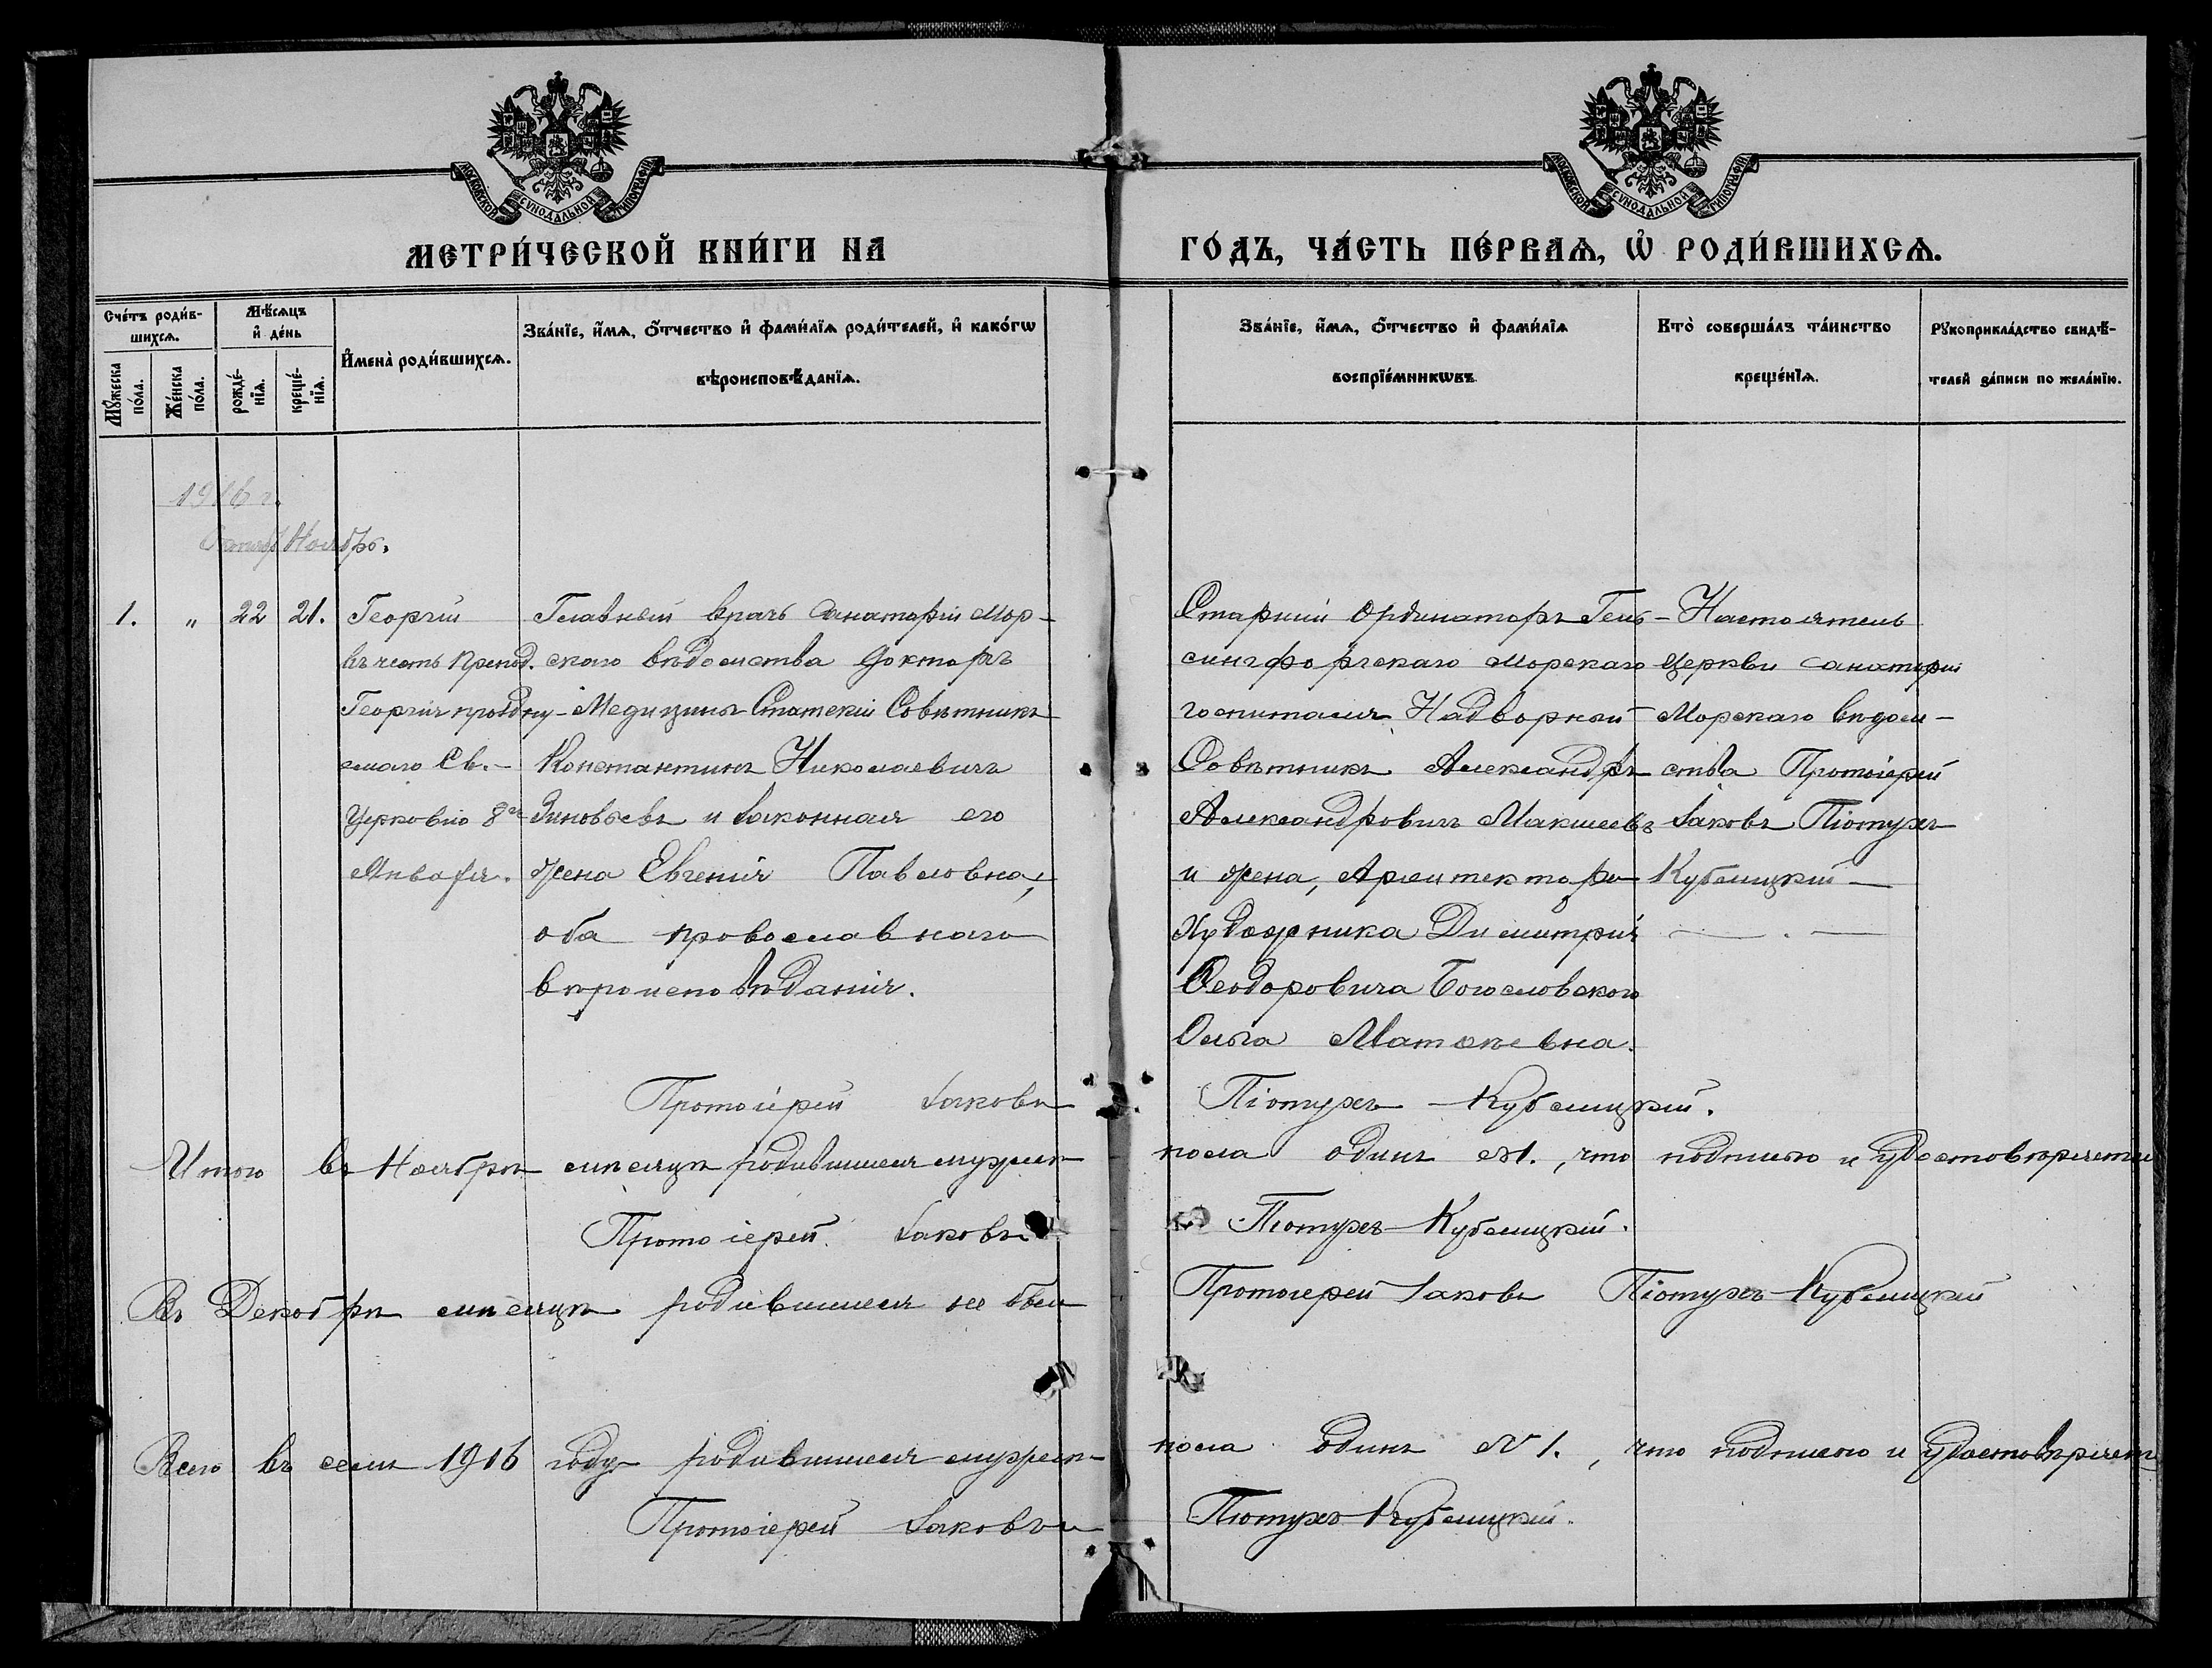 МОСКОВСКОЙ СѴНОДАЛЬНОЙ ТИПОГРАФІИ
МОСКОВСКОЙ СѴНОДАЛЬНОЙ ТИПОГРАФІИ
МЕТРИ́ЧЕСКОЙ КНИ́ГИ НА
ГО́ДЪ, ЧА́СТЬ ПЕ́РВАѦ, Ѡ҆ РОДИ́ВШИХСѦ.
Сче́тъ роди́в-
шихсѧ.
Мѣ́сѧцъ
и҆ де́нь
Мꙋ́жеска
по́ла.
Же́нска
по́ла.
рожде́-
нїѧ.
креще́-
нїѧ.
И҆мена̀ роди́вшихсѧ.
Зва́нїе, и҆́мѧ, ѻ҆́тчество и҆ фами́лїѧ роди́телей, и҆ како́гѡ
вѣроисповѣ́данїѧ.
Зва́нїе, и҆́мѧ, ѻ҆́тчество и҆ фами́лїѧ
воспрїе́мникѡвъ.
Кто̀ соверша́лъ та́инство
креще́нїѧ.
Рꙋкоприкла́дство свидѣ́-
телей за́писи по жела́нїю.
1916 г.
Октябр Ноябрь.
1. " 22 21.
Георгій
въ честь Препод.
Георгія праздну-
емаго Св.
Церковію 8го
Января.
Главный врачъ Санаторіи Мор-
ского вѣдомства Докторъ
Медицины Статскій Совѣтникъ
Константинъ Николаевичъ
Зиновьевъ и законная его
жена Евгенія Павловна,
оба православнаго
вѣроисповѣданія.
Старшій Ординаторъ Гель-
сингфорскаго морскаго
госпиталя Надворный
Совѣтникъ Александръ
Александровичъ Макшеевъ
и жена, Архитектора
Художника Димитрія
Ѳеодоровича Богословскаго
Ольга Матвѣевна.
Настоятель
Церкви санаторіи
Морскаго вѣдом-
ства Протоіерей
Іаковъ Пѣтухъ
Кубашицкій
Протоіерей Іаковъ Пѣтухъ-Кубашицкій.
Итого въ Ноябрѣ мѣсяцѣ родившихся мужеска пола одинъ №1., что подписью и удостовѣряетъ
Протоіерей Іаковъ Пѣтухъ-Кубашицкій.
Въ Декабрѣ мѣсяцѣ родившихся не было Протоіерей Іаковъ Пѣтухъ-Кубашицкій
Всего въ семъ 1916 году родившихся мужеска пола одинъ №1., что подписью и удостовѣряетъ
Протоіерей Іаковъ Пѣтухъ-Кубашицкій.